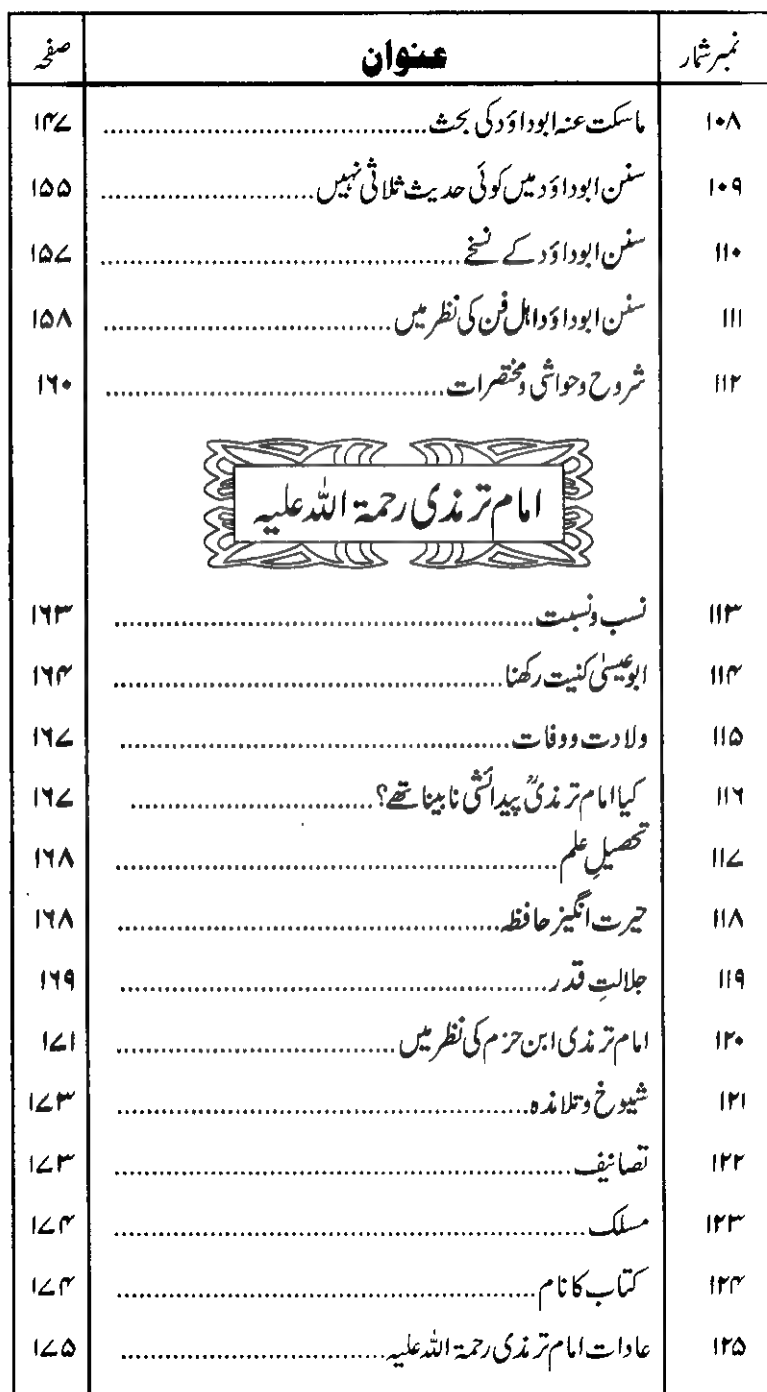 نمبر شمار عنوان صفحہ
۱۰۸ ماسکت عنہ ابوداؤد کی بحث ........ ۱۴۷
۱۰۹ سنن ابوداؤد میں کوئی حدیث ثلاثی نہیں ........ ۱۵۵
۱۱۰ سنن ابوداؤد کے نسخے ........ ۱۵۷
۱۱۱ سنن ابوداؤد اہل فن کی نظر میں ........ ۱۵۸
۱۱۲ شروح وحواشی ومختصرات ........ ۱۶۰
امام ترمذی رحمۃ اللہ علیہ
۱۱۳ نسب ونسبت ........ ۱۶۳
۱۱۴ ابوعیسیٰ کنیت رکھنا ........ ۱۶۴
۱۱۵ ولادت ووفات ........ ۱۶۷
۱۱۶ کیا امام ترمذیؒ پیدائشی نابینا تھے؟ ........ ۱۶۷
۱۱۷ تحصیلِ علم ........ ۱۶۸
۱۱۸ حیرت انگیز حافظہ ........ ۱۶۸
۱۱۹ جلالتِ قدر ........ ۱۶۹
۱۲۰ امام ترمذی ابن حزم کی نظر میں ........ ۱۷۱
۱۲۱ شیوخ وتلامذہ ........ ۱۷۳
۱۲۲ تصانیف ........ ۱۷۳
۱۲۳ مسلک ........ ۱۷۴
۱۲۴ کتاب کا نام ........ ۱۷۴
۱۲۵ عادات امام ترمذی رحمۃ اللہ علیہ ........ ۱۷۵